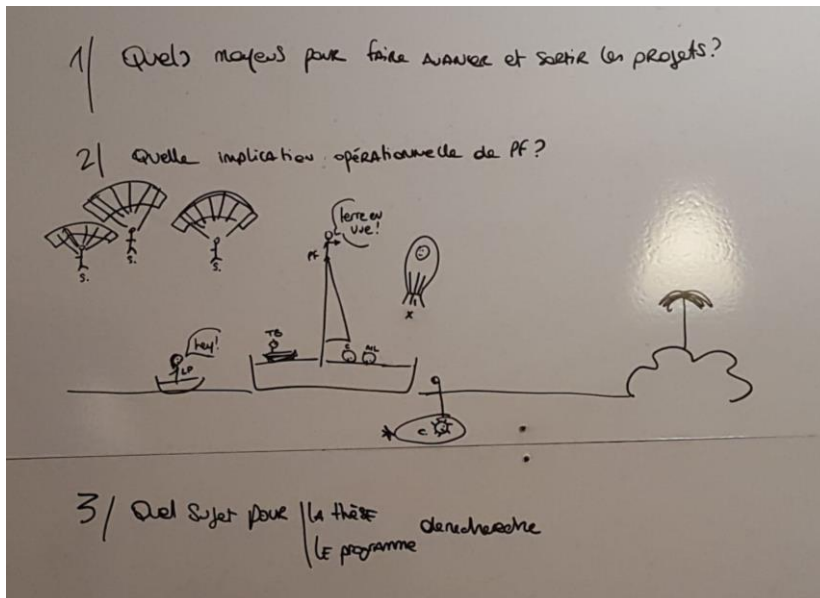 1/ Quels moyens pour faire AVANCER et sortir les projets?
2/ Quelle implication opérationnelle de PF?
terre en
vue!
PF
S.
S.
S.
x
TB
hey!
LP
C
3/ Quel sujet pour
LA thèse
LE programme
de recherche